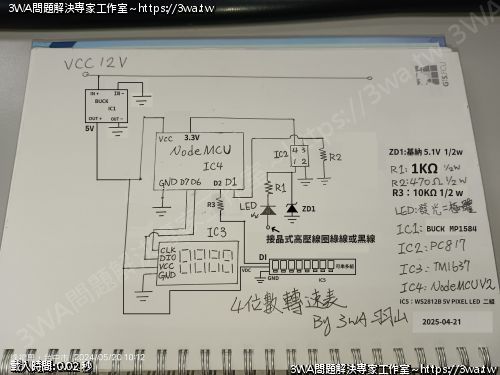 3WA問題解決專家工作室~https://3wa.tw
3WA問題解決專家工作室~https://3wa.tw
VCC 12V
IN + IN -
BUCK
IC1
OUT + OUT -
5V
VCC 3.3V
NodeMCU
IC4
GND D7 D6 D2 D1
IC2
4 3
1 2
R2
R1
LED
ZD1
R3
IC3
接晶式高壓線圈綠線或黑線
CLK
DIO
VCC
GND
DI
VDC
GND
可串多組
IC5
4位數轉速表
By 3WA 羽山
ZD1:基納 5.1V 1/2w
R1: 1KΩ 1/2W
R2:470Ω 1/2W
R3:10KΩ 1/2 w
LED:發光二極體
IC1: BUCK MP1584
IC2:PC817
IC3:TM1637
IC4:NodeMCU V2
IC5:WS2812B 5V PIXEL LED 二組
2025-04-21
2024/05/20 10:12
載入時間:0.02秒